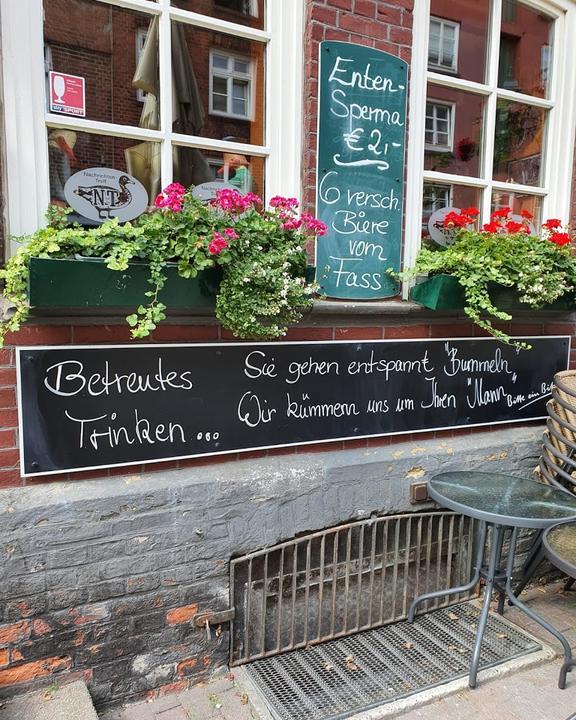 Enten-
Sperma
€ 2,-
6 versch.
Biere
vom
Fass
Nachrichten
Treff
NT
SKY SPORT
Betreutes
Trinken...
Sie gehen entspannt "Bummeln"
Wir kümmern uns um Ihren "Mann"
Bitte ein Bit